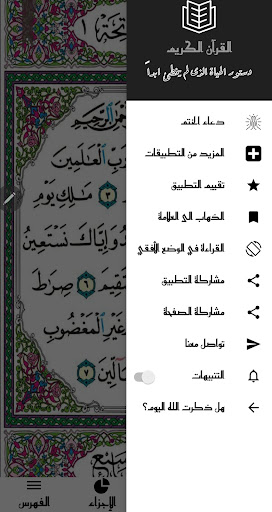 القرآن الكريم
دستور الحياة الذى لم يخطئ ابداً
دعاء الختم
المزيد من التطبيقات
تقييم التطبيق
الذهاب الى العلامة
القراءة في الوضع الأفقي
مشاركة التطبيق
مشاركة الصفحة
تواصل معنا
التنبيهات
وهل ذكرت الله اليوم؟
تحة ١
ٱلرَّحِيمِ
بِّ ٱلْعَٰلَمِينَ
٣ مَٰلِكِ يَوْمِ
دُ وَإِيَّاكَ نَسْتَعِينُ
قِيمَ ٦ صِرَٰطَ
غَيْرِ ٱلْمَغْضُوبِ
آلِّينَ ٧
الأجزاء
الفهرس